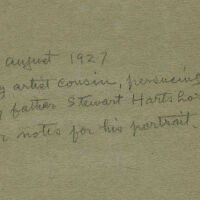 august 1927
artist cousin, persueing
father Stewart Hartsho
notes for his portrait.